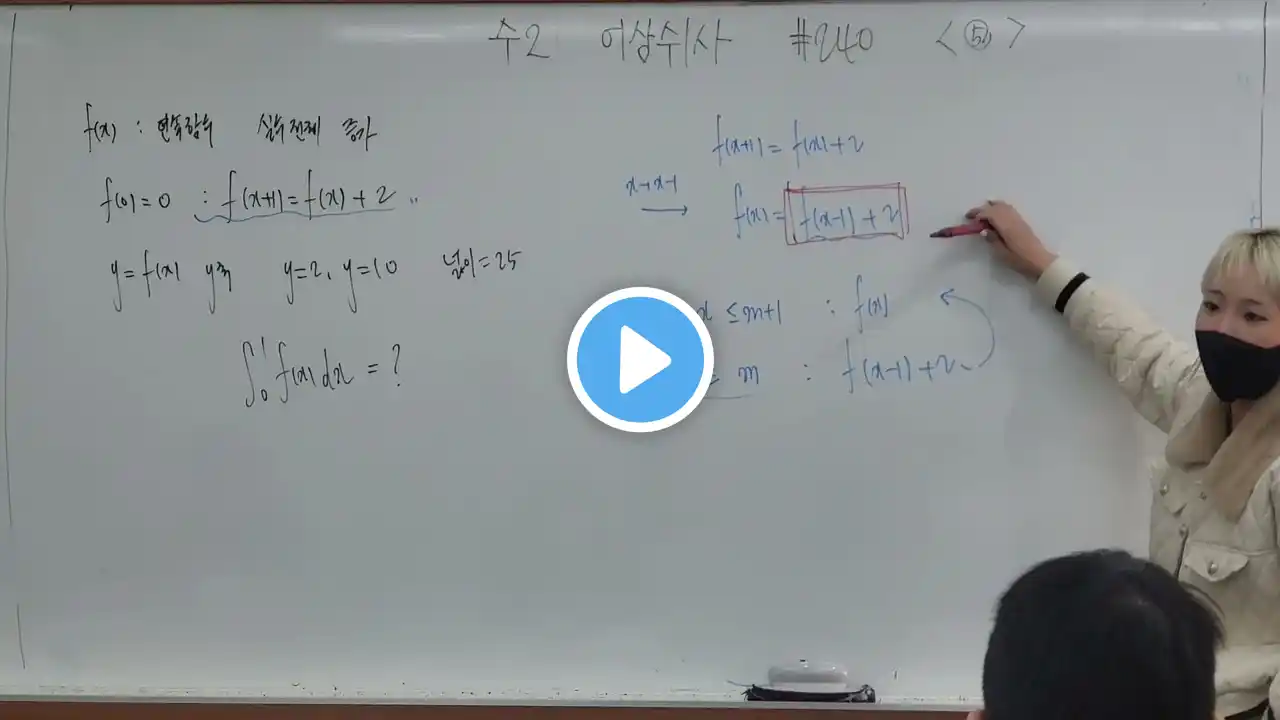 수2 이상쉬사 #240 <⑤>
f(x) : 연속함수 실수전체 증가
f(0)=0 : f(x+1)=f(x)+2
y=f(x) y축 y=2, y=10 넓이=25
∫₀¹ f(x)dx = ?
f(x+1)=f(x)+2
x→x-1
f(x)=f(x-1)+2
x ≤ m+1 : f(x)
= m : f(x-1)+2